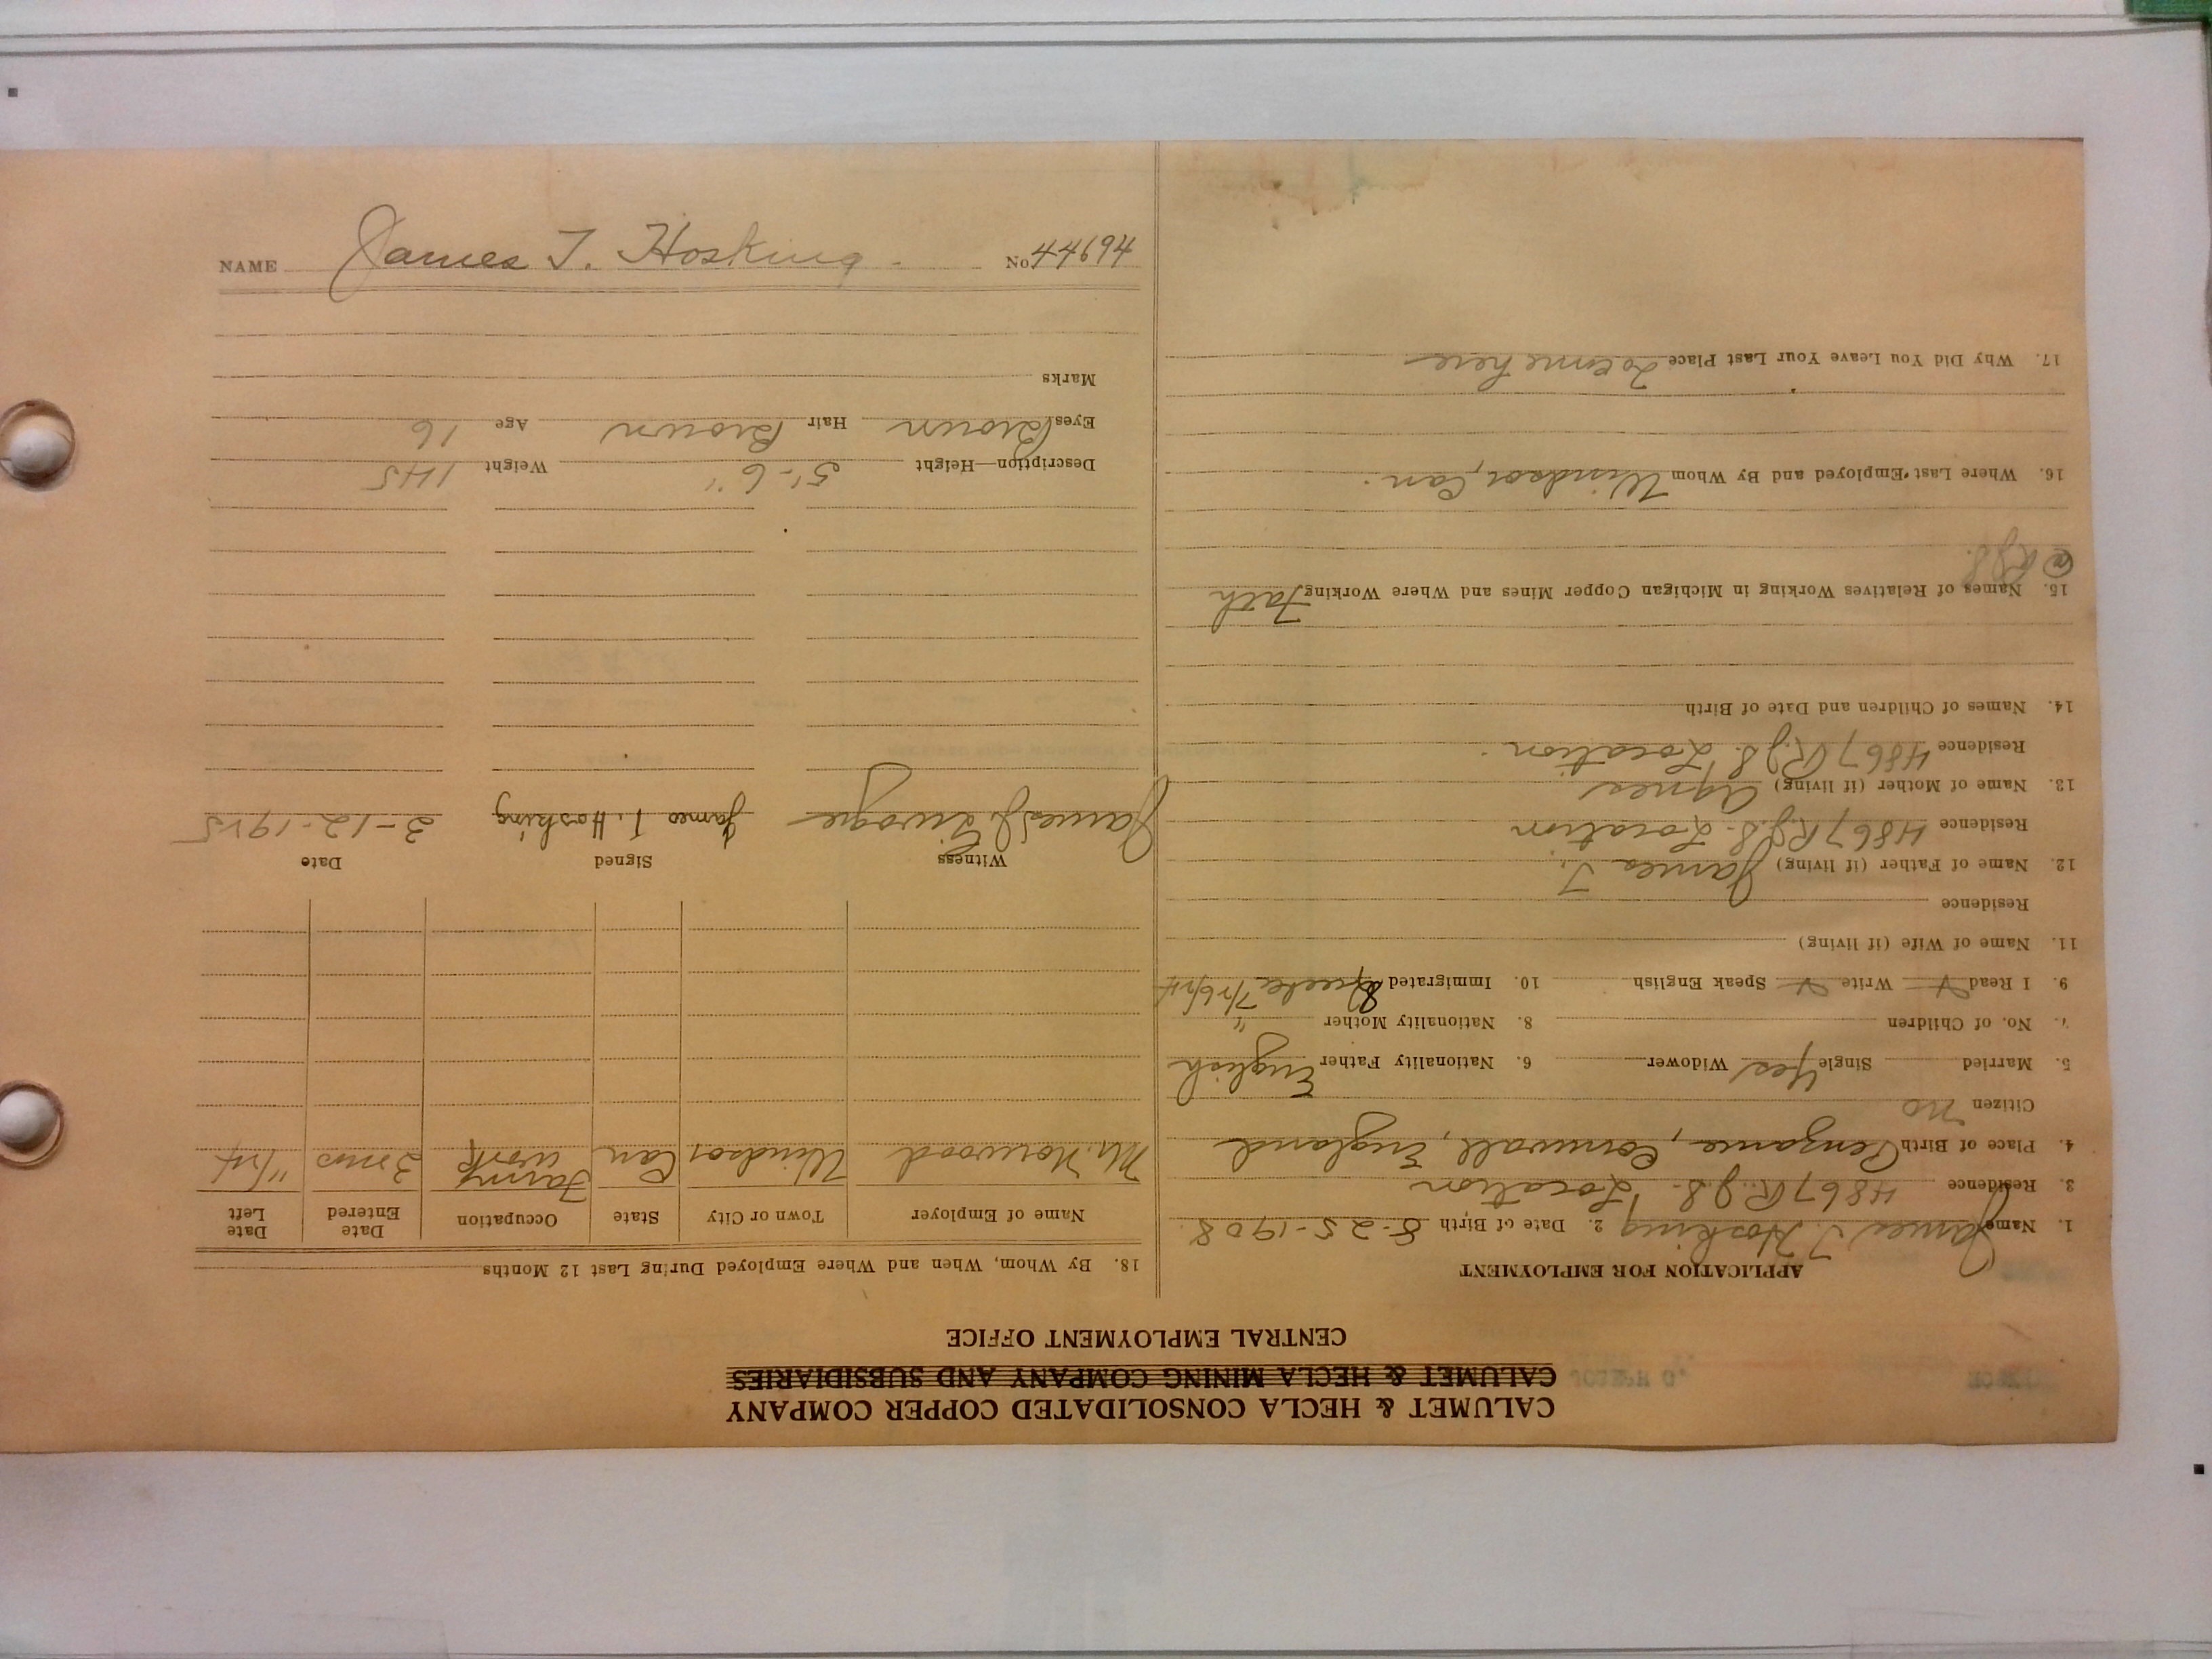 CALUMET & HECLA CONSOLIDATED COPPER COMPANY
CALUMET & HECLA MINING COMPANY AND SUBSIDIARIES
CENTRAL EMPLOYMENT OFFICE
APPLICATION FOR EMPLOYMENT
1. Name James T. Hosking 2. Date of Birth 8-25-1908
3. Residence 4867 R.J.S. Location
4. Place of Birth Penzance, Cornwall, England
Citizen no
5. Married Single Yes Widower 6. Nationality Father English
7. No. of Children 8. Nationality Mother "
9. I Read Write Speak English 10. Immigrated
11. Name of Wife (if living)
Residence
12. Name of Father (if living) James T.
Residence 4867 R.J.S. Location
13. Name of Mother (if living) Agnes
Residence 4867 R.J.S. Location
14. Names of Children and Date of Birth
15. Names of Relatives Working in Michigan Copper Mines and Where Working Fath
@ R.J.S.
16. Where Last Employed and By Whom Windsor, Can.
17. Why Did You Leave Your Last Place To come here
18. By Whom, When and Where Employed During Last 12 Months
Name of Employer Town or City State Occupation Date Entered Date Left
Mr. Norwood Windsor Can Farm work 3 mos 11/24
Witness Signed Date
James J. James T. Hosking 3-12-1925
Description—Height 5'-6" Weight 145
Eyes Brown Hair Brown Age 16
Marks
NAME James T. Hosking No 44694